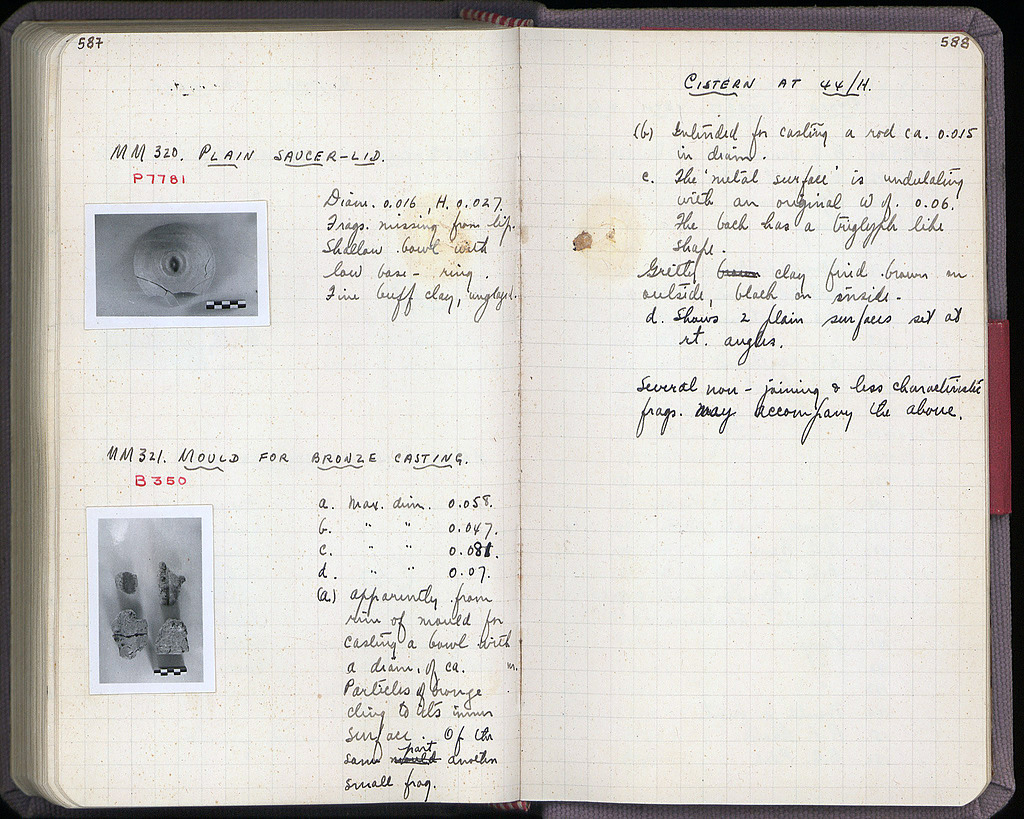 587
MM 320. PLAIN SAUCER-LID.
P7781
Diam. 0.016, H. 0.027.
Frags. missing from lip.
Shallow bowl with
low base-ring.
Fine buff clay, unglazed.
MM 321. MOULD FOR BRONZE CASTING.
B 350
a. Max. dim. 0.058.
b. " " 0.047.
c. " " 0.081.
d. " " 0.07.
(a.) apparently from
rim of mould for
casting a bowl with
a diam. of ca. m.
Particles of bronze
cling to its inner
surface. Of the
same mould part another
small frag.
588
CISTERN AT 44/H.
(b) Intended for casting a rod ca. 0.015
in diam.
c. The 'metal surface' is undulating
with an original W of 0.06.
The back has a triglyph like
shape.
Gritty brown clay fired brown on
outside, black on inside.
d. Shows 2 plain surfaces set at
rt. angles.
Several non-joining & less characteristic
frags. may accompany the above.